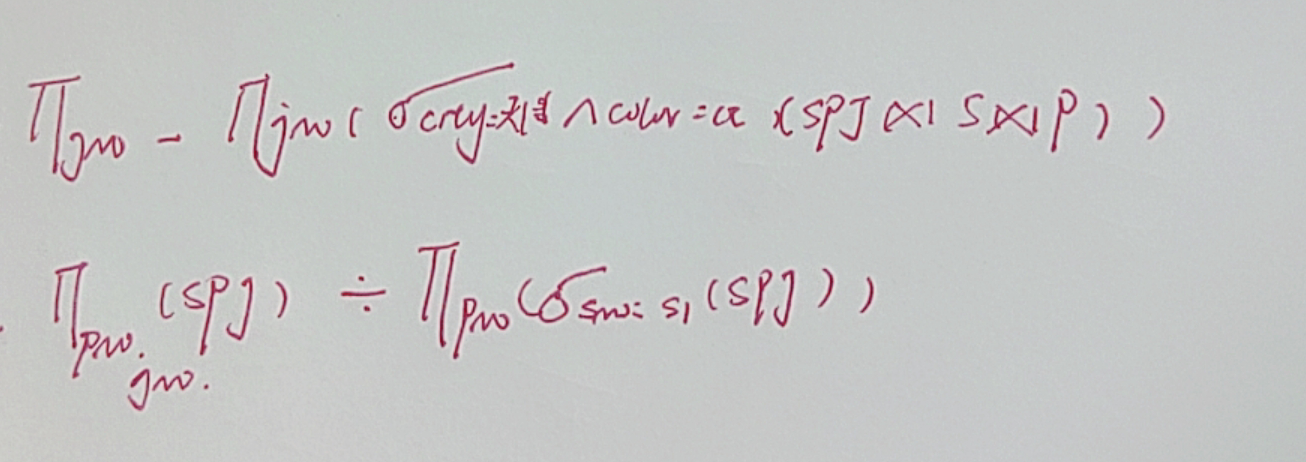 ∏jno - ∏jno(σcity=天津∧color=红(SPJ⋈S⋈P))
∏pno.jno.(SPJ) ÷ ∏pno(σsno=s1(SPJ))